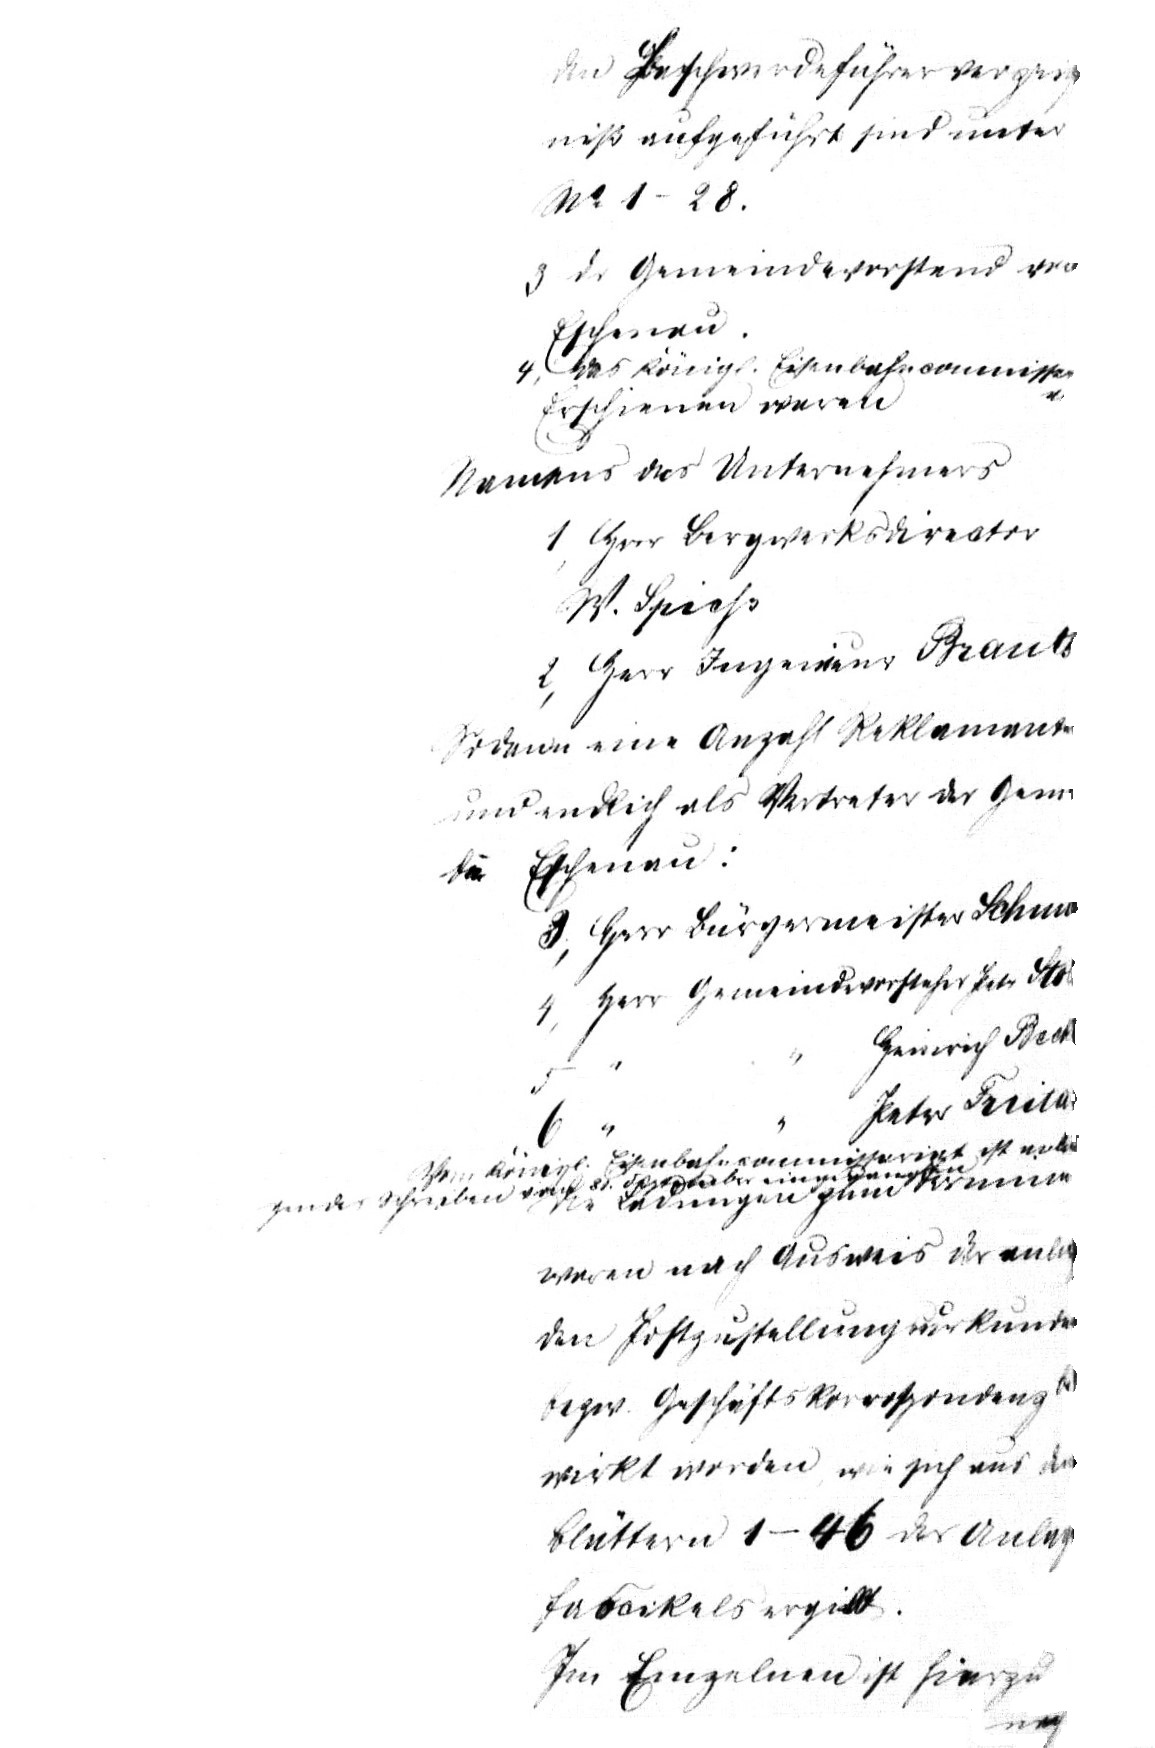 den Beschwerdeführerverzeich
niß aufgeführt sind unter
No 1 - 28.
3 der Gemeindevorstand von
Eschenau.
4, das Königl. Eisenbahncommissa
Erschienen waren
Namens des Unternehmers
1, Herr Bergwerksdirector
W. Spieß
2, Herr Ingenieur Brandt
Sodann eine Anzahl Reklamanten
und endlich als Vertreter der Gemein
de Eschenau:
3, Herr Bürgermeister
4, Herr Gemeindevorsteher Peter
5 " " Heinrich
6 " " Peter
Vom Königl. Eisenbahncommissariat ist
gendes Schreiben vom eingegangen
Die Ladungen zum Termine
waren nach Ausweis der anlieg
den Postzustellungsurkunden
bezw. Geschäftskorrespondenz be
wirkt worden, wie sich aus den
Blättern 1 - 46 des Anlage
fascikels ergibt.
Im Einzelnen ist hierzu
noch